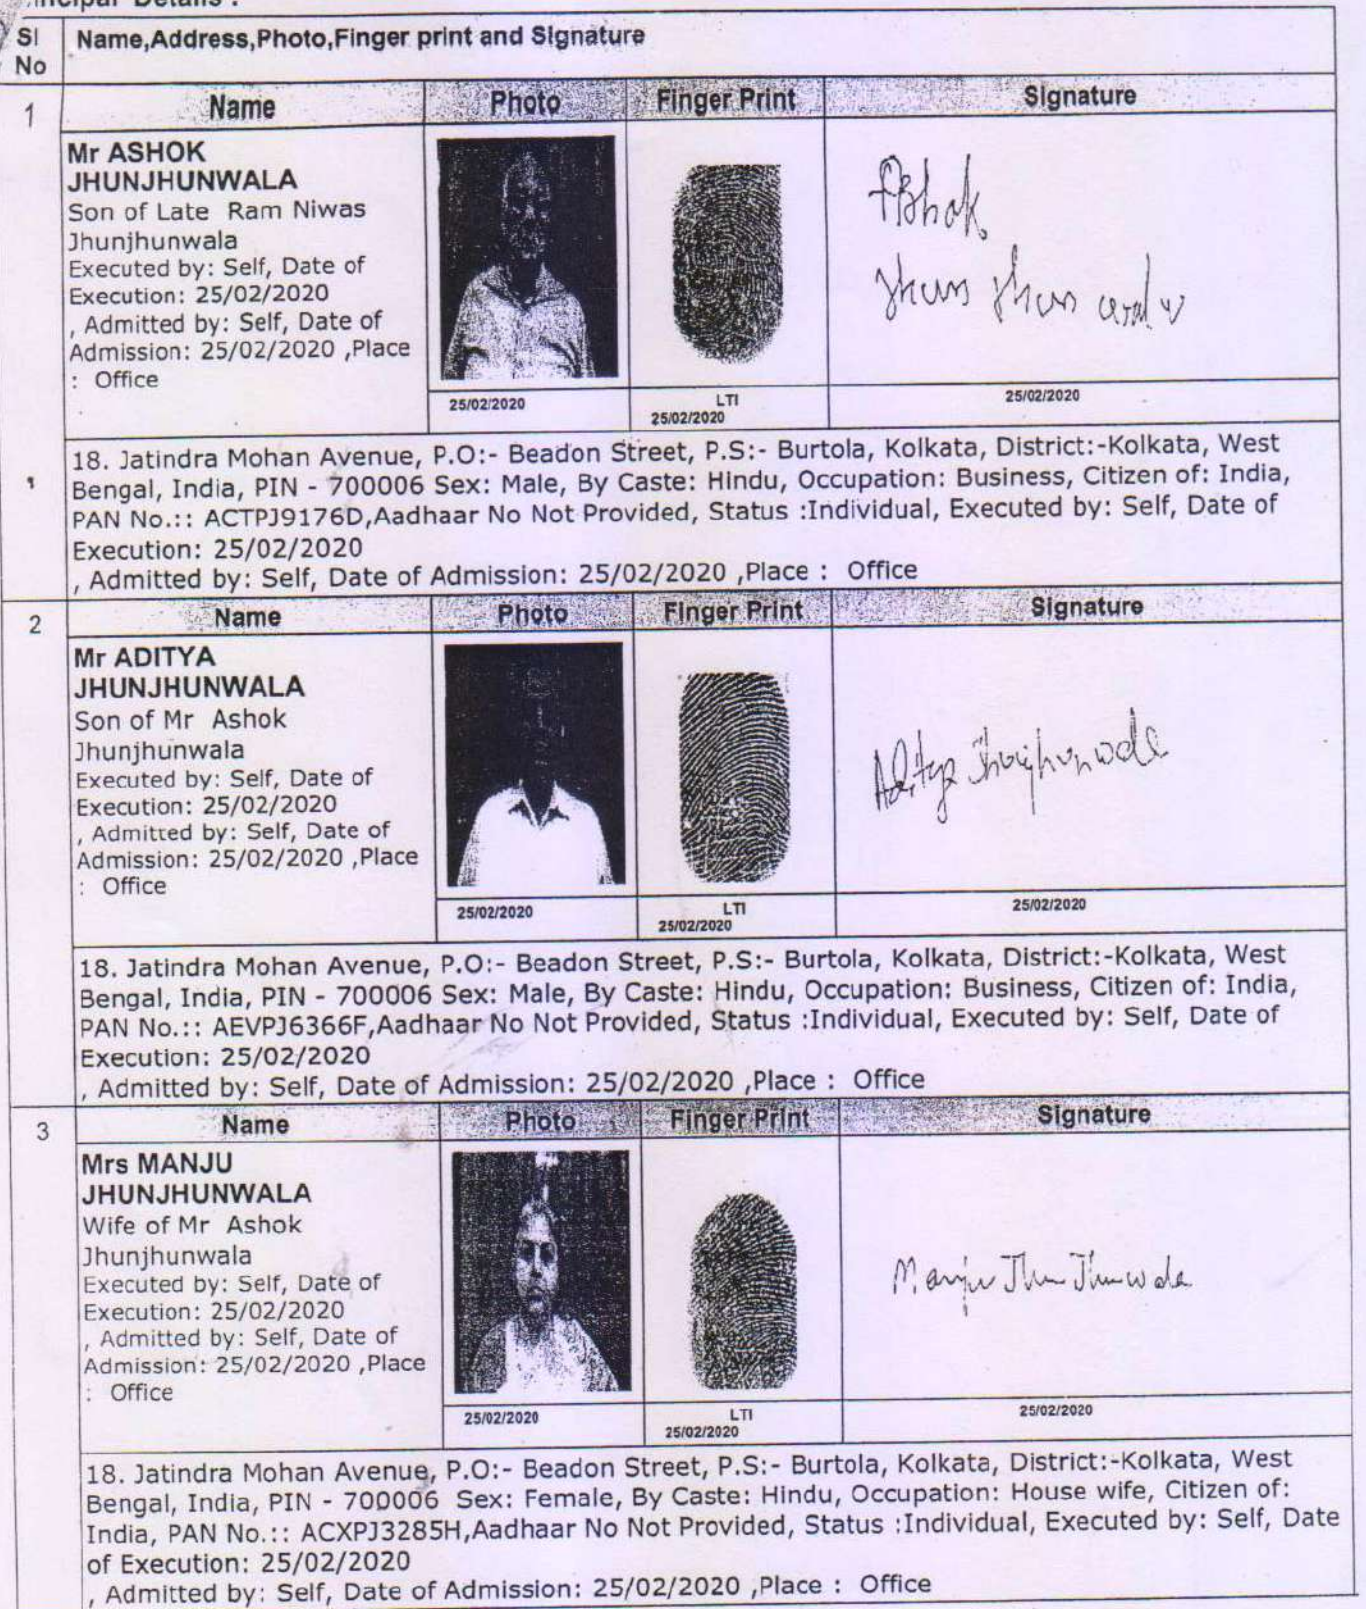 Details :
Sl No
Name,Address,Photo,Finger print and Signature
1
Name Photo Finger Print Signature
Mr ASHOK
JHUNJHUNWALA
Son of Late Ram Niwas
Jhunjhunwala
Executed by: Self, Date of
Execution: 25/02/2020
, Admitted by: Self, Date of
Admission: 25/02/2020 ,Place
: Office
Ashok
Jhunjhunwala
25/02/2020
LTI
25/02/2020
25/02/2020
18. Jatindra Mohan Avenue, P.O:- Beadon Street, P.S:- Burtola, Kolkata, District:-Kolkata, West
Bengal, India, PIN - 700006 Sex: Male, By Caste: Hindu, Occupation: Business, Citizen of: India,
PAN No.:: ACTPJ9176D,Aadhaar No Not Provided, Status :Individual, Executed by: Self, Date of
Execution: 25/02/2020
, Admitted by: Self, Date of Admission: 25/02/2020 ,Place : Office
2
Name Photo Finger Print Signature
Mr ADITYA
JHUNJHUNWALA
Son of Mr Ashok
Jhunjhunwala
Executed by: Self, Date of
Execution: 25/02/2020
, Admitted by: Self, Date of
Admission: 25/02/2020 ,Place
: Office
Aditya Jhunjhunwala
25/02/2020
LTI
25/02/2020
25/02/2020
18. Jatindra Mohan Avenue, P.O:- Beadon Street, P.S:- Burtola, Kolkata, District:-Kolkata, West
Bengal, India, PIN - 700006 Sex: Male, By Caste: Hindu, Occupation: Business, Citizen of: India,
PAN No.:: AEVPJ6366F,Aadhaar No Not Provided, Status :Individual, Executed by: Self, Date of
Execution: 25/02/2020
, Admitted by: Self, Date of Admission: 25/02/2020 ,Place : Office
3
Name Photo Finger Print Signature
Mrs MANJU
JHUNJHUNWALA
Wife of Mr Ashok
Jhunjhunwala
Executed by: Self, Date of
Execution: 25/02/2020
, Admitted by: Self, Date of
Admission: 25/02/2020 ,Place
: Office
Manju JhunJhunwala
25/02/2020
LTI
25/02/2020
25/02/2020
18. Jatindra Mohan Avenue, P.O:- Beadon Street, P.S:- Burtola, Kolkata, District:-Kolkata, West
Bengal, India, PIN - 700006 Sex: Female, By Caste: Hindu, Occupation: House wife, Citizen of:
India, PAN No.:: ACXPJ3285H,Aadhaar No Not Provided, Status :Individual, Executed by: Self, Date
of Execution: 25/02/2020
, Admitted by: Self, Date of Admission: 25/02/2020 ,Place : Office